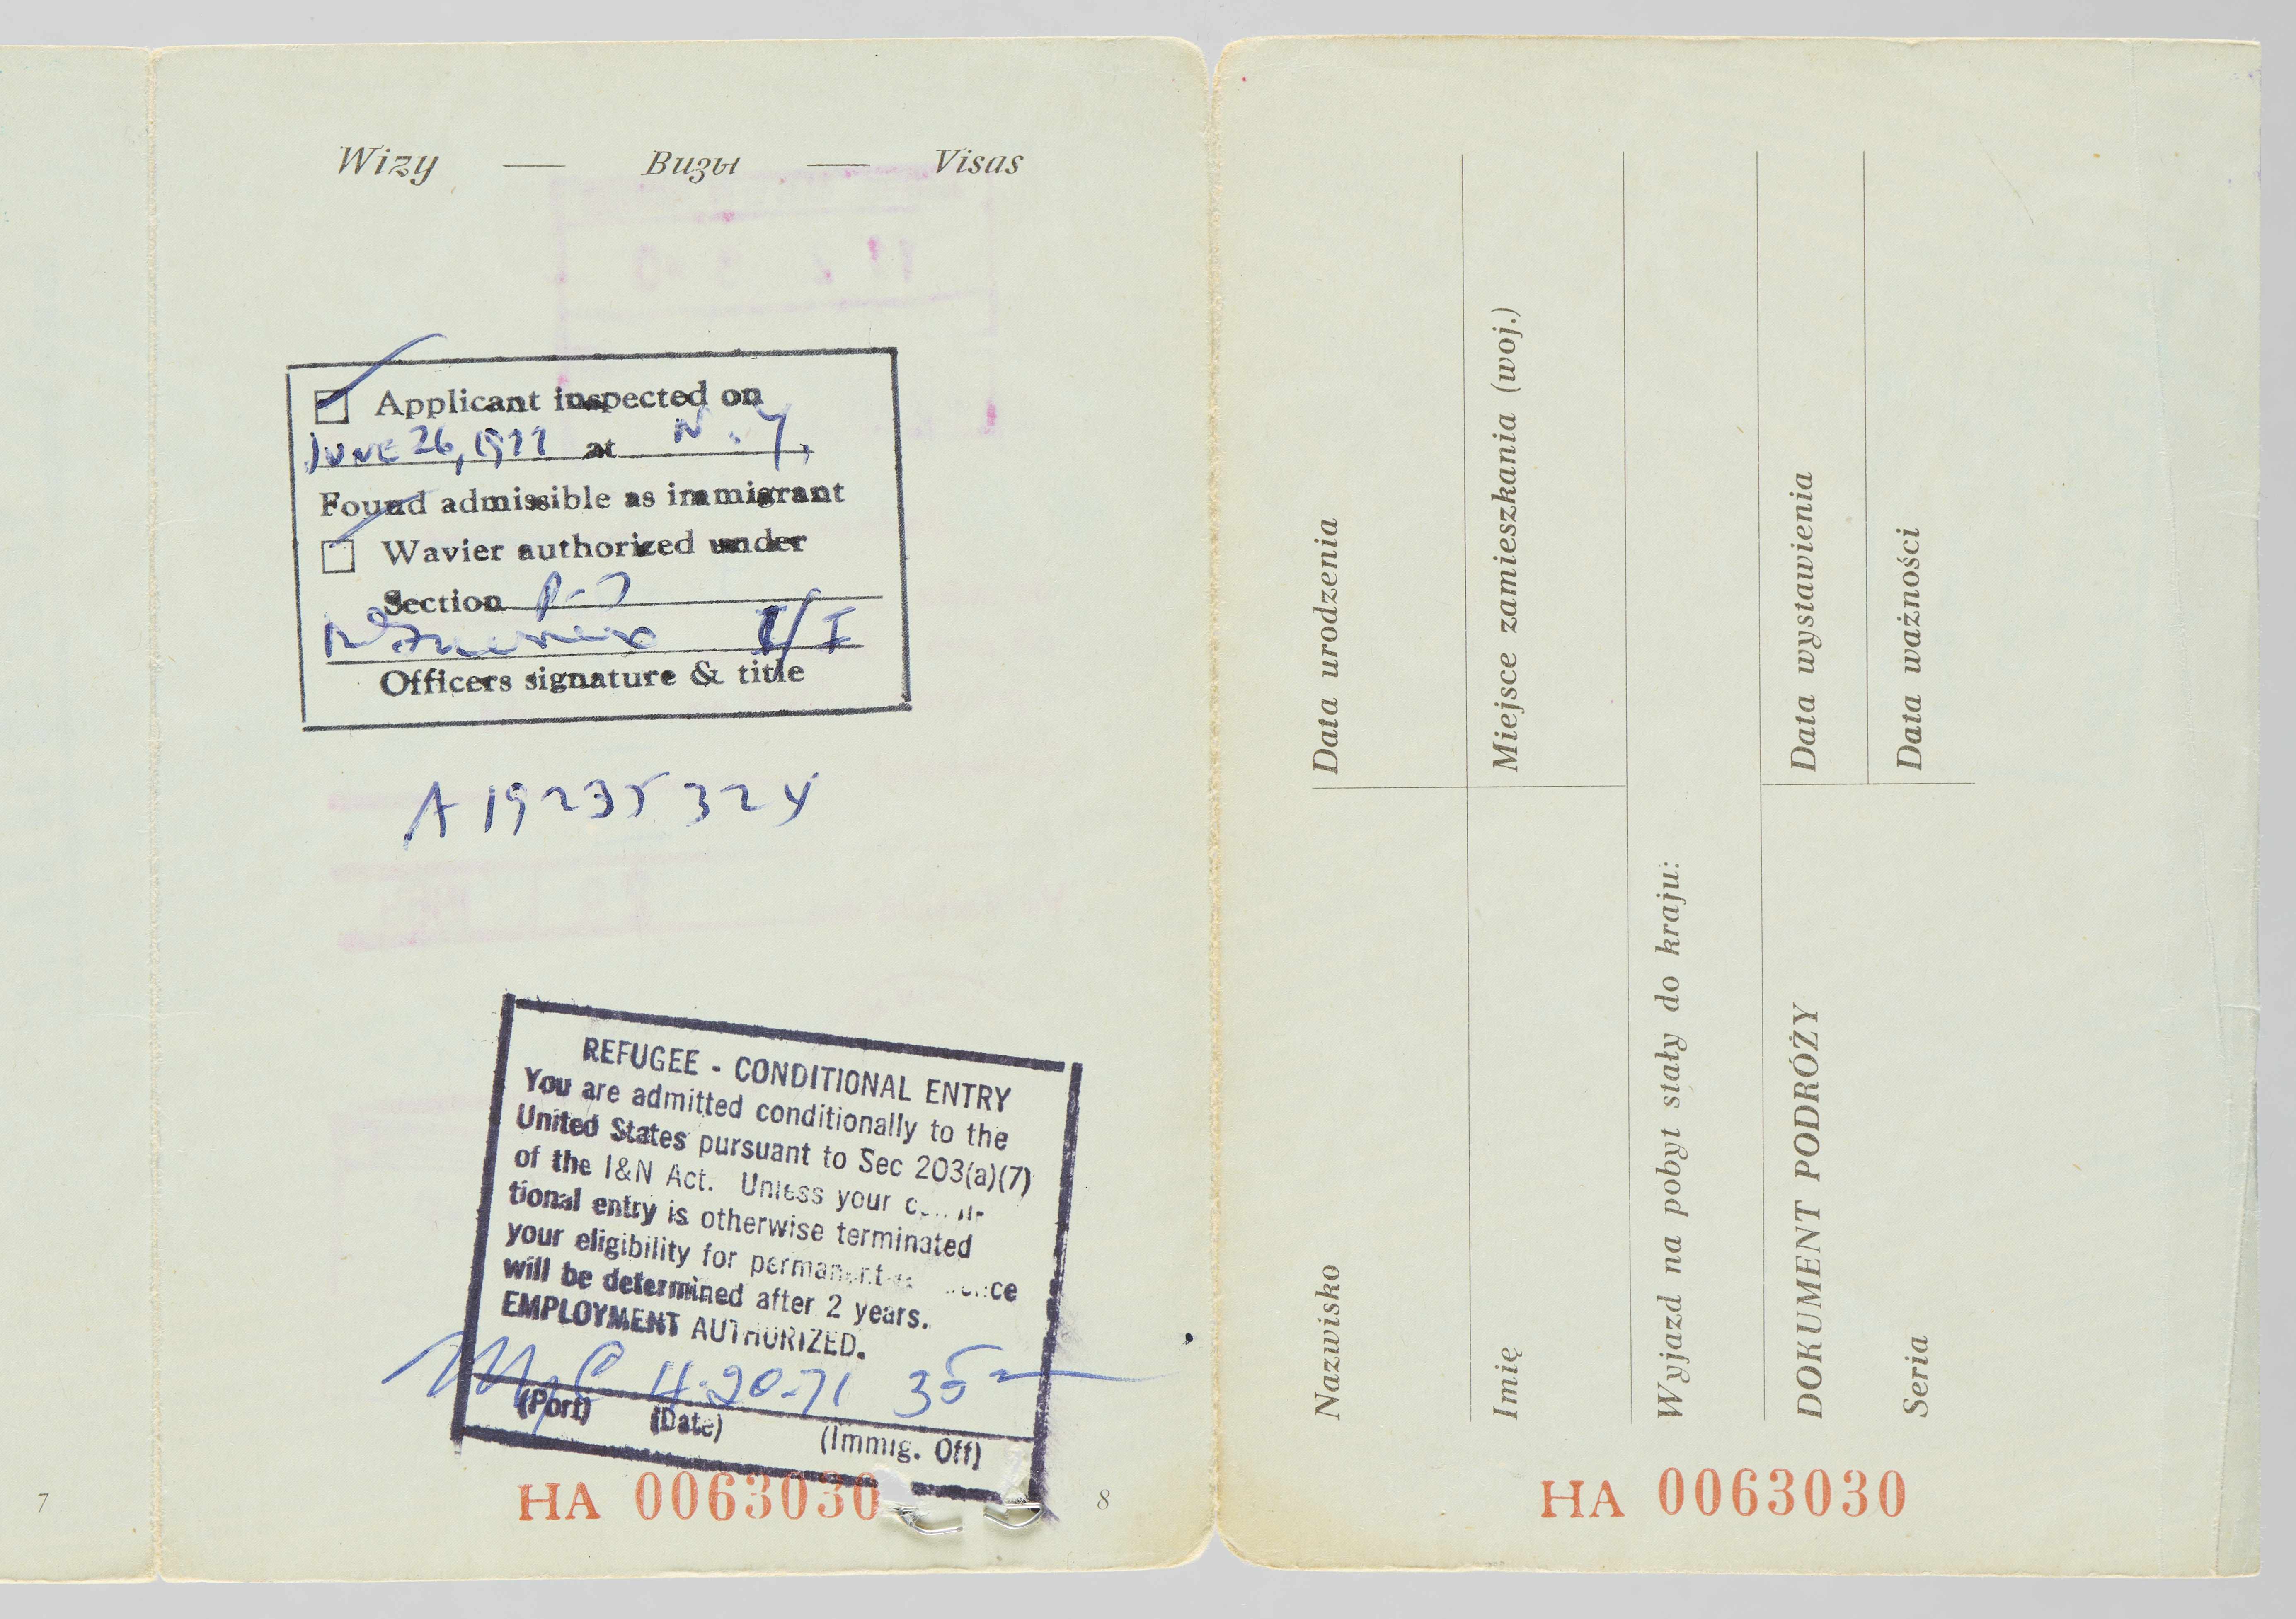 7
Wizy — Визы — Visas
Applicant inspected on
JUNE 26, 1977 at N.Y.
Found admissible as immigrant
Wavier authorized under
Section P-7
I/I
Officers signature & title
A19 235 324
REFUGEE - CONDITIONAL ENTRY
You are admitted conditionally to the
United States pursuant to Sec 203(a)(7)
of the I&N Act. Unless your
tional entry is otherwise terminated
your eligibility for permanent
will be determined after 2 years.
EMPLOYMENT AUTHORIZED.
35
(Port) (Date) (Immig. Off)
HA 0063030
8
Nazwisko
Data urodzenia
Imię
Miejsce zamieszkania (woj.)
Wyjazd na pobyt stały do kraju:
DOKUMENT PODRÓŻY
Data wystawienia
Seria
Data ważności
HA 0063030